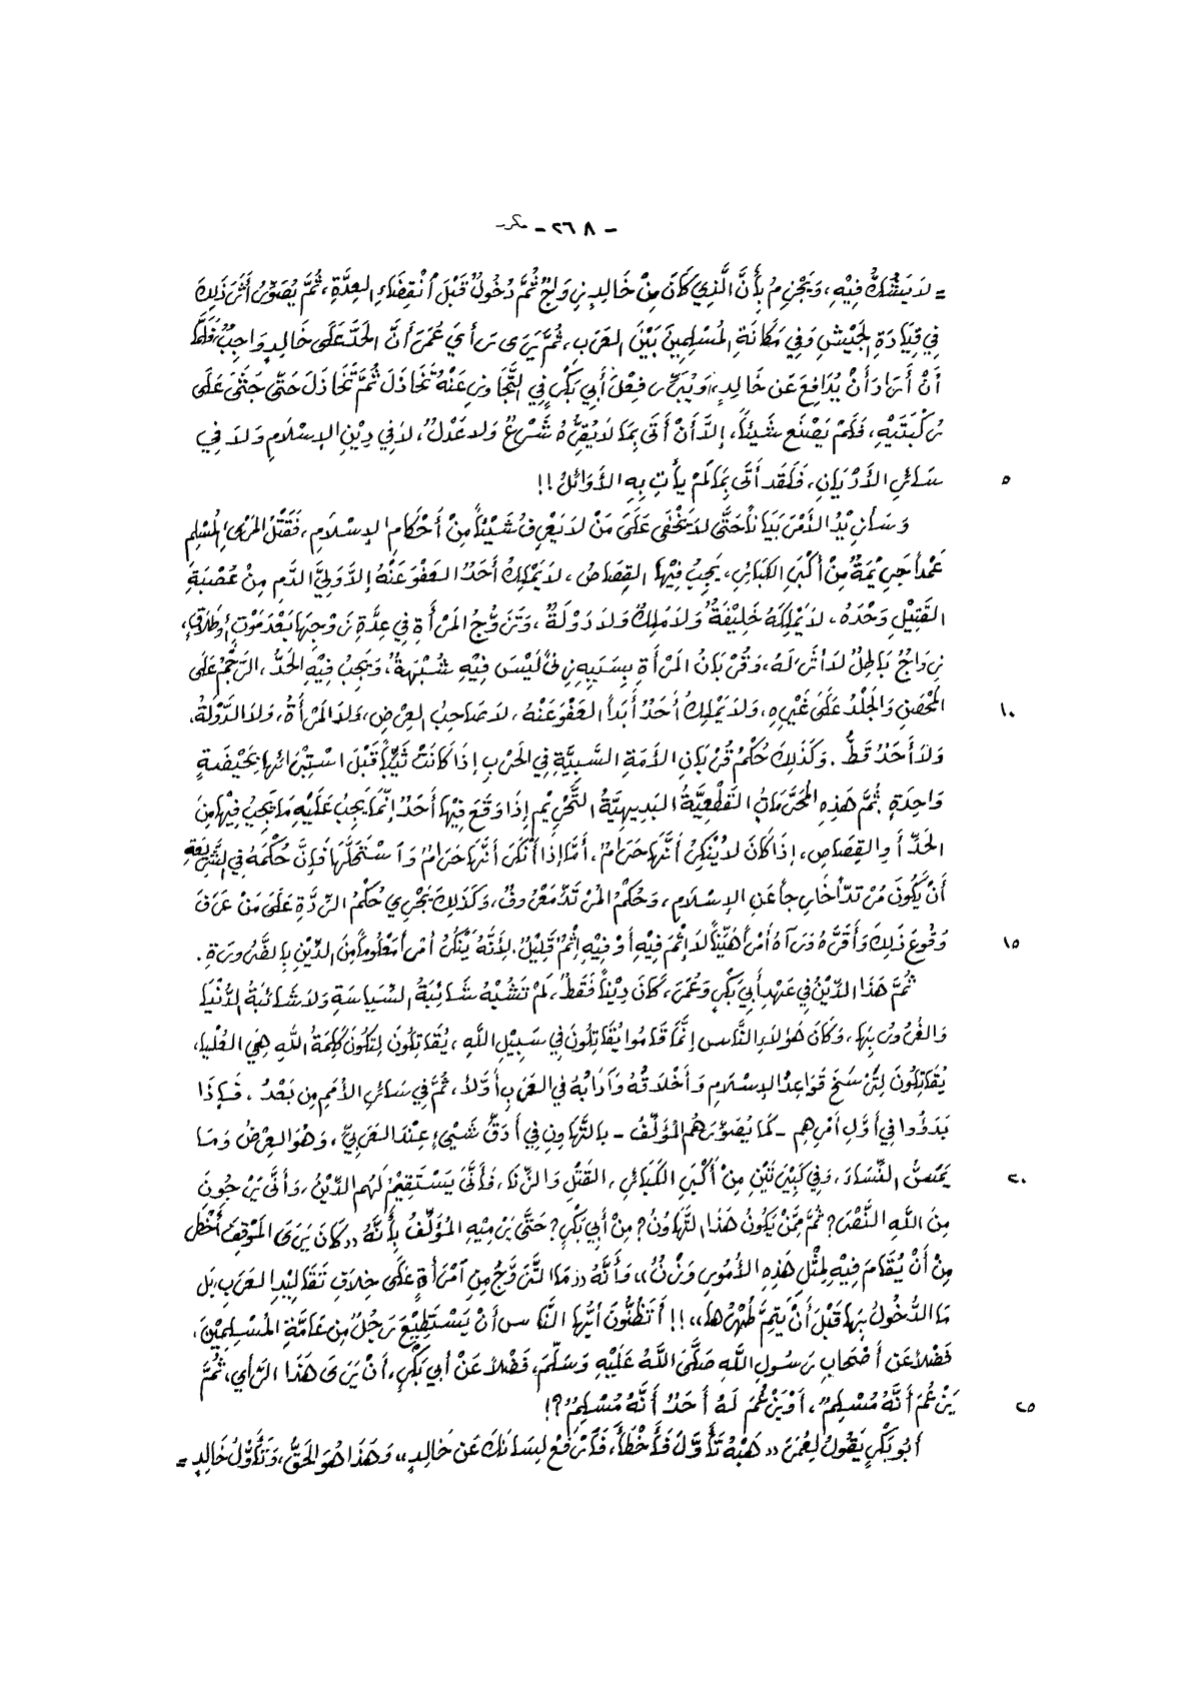 - ٢٦٨ - مكرر
= لاَ يَشُكُّ فِيْهِ، وَيَجْزِمُ بِأَنَّ الَّذِي كَانَ مِنْ خَالِدٍ زِوَاجٌ ثُمَّ دُخُولٌ قَبْلَ انْقِضَاءِ العِدَّةِ، ثُمَّ يُصَوِّرُ أَثَرَ ذَلِكَ
فِي قِيَادَةِ الجَيْشِ وَفِي مَكَانَةِ المُسْلِمِينَ بَيْنَ العَرَبِ، ثُمَّ يَرَى رَأيَ عُمَرَ أَنَّ الحَدَّ عَلَى خَالِدٍ وَاجِبٌ، فَلَمَّا
أَنْ أَرَادَ أَنْ يُدَافِعَ عَن خَالِدٍ، وَيُبَرِّرَ فِعْلَ أَبِي بَكْرٍ فِي التَّجَاوزِ عَنْهُ تَخَاذَلَ ثُمَّ تَخَاذَلَ حَتَّى جَثَى عَلَى
رُكْبَتَيْهِ، فَلَمْ يَصْنَع شَيْئاً، إِلاَّ أَنْ أَتَى بِمَا لاَ يُقِرُّهُ شَرْعٌ وَلا عَدْلٌ، لاَ فِي دِيْنِ الإِسْلاَمِ وَلاَ فِي
٥ سَائرِ الأَدْيَانِ، فَلَقَد أَتَى بِمَا لَمْ يَأْتِ بِهِ الأَوَائلُ!!
وَسَأزِيْدُ الأَمْرَ بَيَاناً حَتَّى لاَ يَخْفَى عَلَى مَنْ لاَ يَعْرِفُ شَيْئاً مِنْ أَحْكَامِ الإِسْلاَمِ، فَقَتْلُ المَرْءِ المُسْلِمِ
عَمْداً جَرِيْمَةٌ مِنْ أَكْبَرِ الكَبَائرِ، يَجِبُ فِيْهَا القِصَاصُ، لاَ يَمْلِكُ أَحَدٌ العَفْوَ عَنْهُ إِلاَّ وَلِيُّ الدَّمِ مِنْ عُصْبَةِ
القَتِيْلِ وَحْدَهُ، لاَ يَمْلِكُهُ خَلِيْفَةٌ وَلاَ مَلِكٌ وَلاَ دَوْلَةٌ، وَتَزَوُّجُ المَرْأَةِ فِي عِدَّةِ زَوْجِهَا بَعْدَ مَوْتٍ أَو طَلاَقٍ،
زِوَاجٌ بَاطِلٌ لاَ أَثَرَ لَهُ، وَقُرْبَانُ المَرْأَةِ بِسَبَبِهِ زِنىً لَيْسَ فِيْهِ شُبْهَةٌ، وَيَجِبُ فِيْهِ الحَدُّ، الرَّجْمُ عَلَى
١٠ المُحْصَنِ وَالجَلْدُ عَلَى غَيْرِهِ، وَلاَ يَمْلِكُ أَحَدٌ أَبَداً العَفْوَ عَنْهُ، لاَ صَاحِبُ العِرْضِ، وَلاَ المَرْأَةُ، وَلاَ الدَّوْلَةُ،
وَلاَ أَحَدٌ قَطُّ. وَكَذَلِكَ حُكْمُ قُرْبَانِ الأَمَةِ السَّبِيَّةِ فِي الحَرْبِ إِذَا كَانَتْ ثَيِّباً قَبْلَ اسْتِبْرَائهَا بِحَيْضَةٍ
وَاحِدَةٍ. ثُمَّ هَذِهِ المُحَرَّمَاتُ القَطْعِيَّةُ البَدِيهِيَّةُ التَّحْرِيْمِ إِذَا وَقَعَ فِيْهَا أَحَدٌ إِنَّمَا يَجِبُ عَلَيْهِ مَا يَجِبُ فِيْهَا مِنَ
الحَدِّ أَو القِصَاصِ، إِذَا كَانَ لاَ يُنْكِرُ أَنَّهَا حَرَامٌ، أَمَّا إِذَا أَنْكَرَ أَنَّهَا حَرَامٌ وَاسْتَحَلَّهَا فَإِنَّ حُكْمَهُ فِي الشَّرِيْعَةِ
أَنْ يَكُونَ مُرْتَدّاً خَارِجاً عَنِ الإِسْلاَمِ، وَحُكْمُ المُرْتَدِّ مَعْرُوفٌ، وَكَذَلِكَ يَجْرِي حُكْمُ الرِّدَّةِ عَلَى مَنْ عَرَفَ
١٥ وَقُوعَ ذَلِكَ وَأَقَرَّهُ وَرَآهُ أَمْراً هَيِّناً لاَ إِثْمَ فِيْهِ أَوْ فِيْهِ إِثْمٌ قَلِيْلٌ. لِأَنَّهُ يُنْكِرُ أَمْراً مَعْلُوماً مِنَ الدِّيْنِ بِالضَّرُورَةِ.
ثُمَّ هَذَا الدِّيْنُ فِي عَهْدِ أَبِي بَكْرٍ وَعُمَرَ، كَانَ دِيْناً فَقَطْ، لَمْ تَشُبْهُ شَائِبَةُ السِّيَاسَةِ وَلاَ شَائبَةُ الدُّنْيَا
وَالغُرُورِ بِهَا، وَكَانَ هَؤُلاَءِ النَّاس إِنَّمَا قَامُوا يُقَاتِلُونَ فِي سَبِيْلِ اللَّهِ، يُقَاتِلُونَ لِتَكُونَ كَلِمَةُ اللهِ هِيَ العُلْيَا،
يُقَاتِلُونَ لِتُرْسَخَ قَوَاعِدُ الإِسْلاَمِ وَأَخْلاَقُهُ وَآدَابُهُ فِي العَرَبِ أَوَّلاً، ثُمَّ فِي سَائرِ الأُمَمِ مِن بَعْدُ، فَإِذَا
بَدَؤُوا فِي أَوَّلِ أَمْرِهِمِ - كَمَا يُصَوِّرُهُمُ المُؤَلِّفُ - بِالتَّهَاوِنِ فِي أَدَقِّ شَيْىءٍ عِنْدَ العَرَبِيِّ، وَهْوَ العِرْضُ وَمَا
٢٠ يَمَسُّ النِّسَاءَ، وَفِي كَبِيْرَتَيْنِ مِنْ أَكْبَرِ الكَبَائرِ، القَتْلِ وَالزِّنَا، فَأَنَّى يَسْتَقِيْمُ لَهُم الدِّيْنُ، وَأَنَّى يَرْجُونَ
مِنَ اللَّهِ النَّصْرَ؟ ثُمَّ مِمَّنْ يَكُونُ هَذَا التَّهَاوُنُ؟ مِنْ أَبِي بَكْرٍ؟ حَتَّى يَرْمِيْهِ المُؤَلِّفُ بِأَنَّهُ «كَانَ يَرَى المَوْقِفَ أَخْطَر
مِنْ أَنْ يُقَامَ فِيْهِ لِمِثْلِ هَذِهِ الأُمُورِ وَزْنٌ» وَأَنَّهُ «مَا التَّزَوُّجُ مِنِ امْرَأَةٍ عَلَى خِلاَفِ تَقَالِيْدِ العَرَبِ بَل
مَا الدُّخُولُ بِهَا قَبْلَ أَنْ يَتِمَّ طُهْرُهَا»!! أَتَظُنُّونَ أَيُّهَا النَّاس أَنْ يَسْتَطِيْعَ رَجُلٌ مِن عَامَّةِ المُسْلِمِيْنَ،
فَضْلاً عَن أَصْحَابِ رَسُولِ اللَّهِ صَلَّى اللَّهُ عَلَيْهِ وَسَلَّمَ، فَضْلاً عَنْ أَبِي بَكْرٍ، أَنْ يَرَى هَذَا الرَّأيِ، ثُمَّ
٢٥ يَزْعُمَ أَنَّهُ مُسْلِمٌ، أَوْ يَزْعُمَ لَهُ أَحَدٌ أَنَّهُ مُسْلِمٌ؟!
أَبُو بَكْرٍ يَقُولُ لِعُمَرَ «هَبْهُ تَأَوَّلَ فَأَخْطَأَ، فَارْفَعْ لِسَانَكَ عَن خَالِدٍ» وَهَذَا هُوَ الحَقُّ، وَتَأَوُّلُ خَالِدٍ =